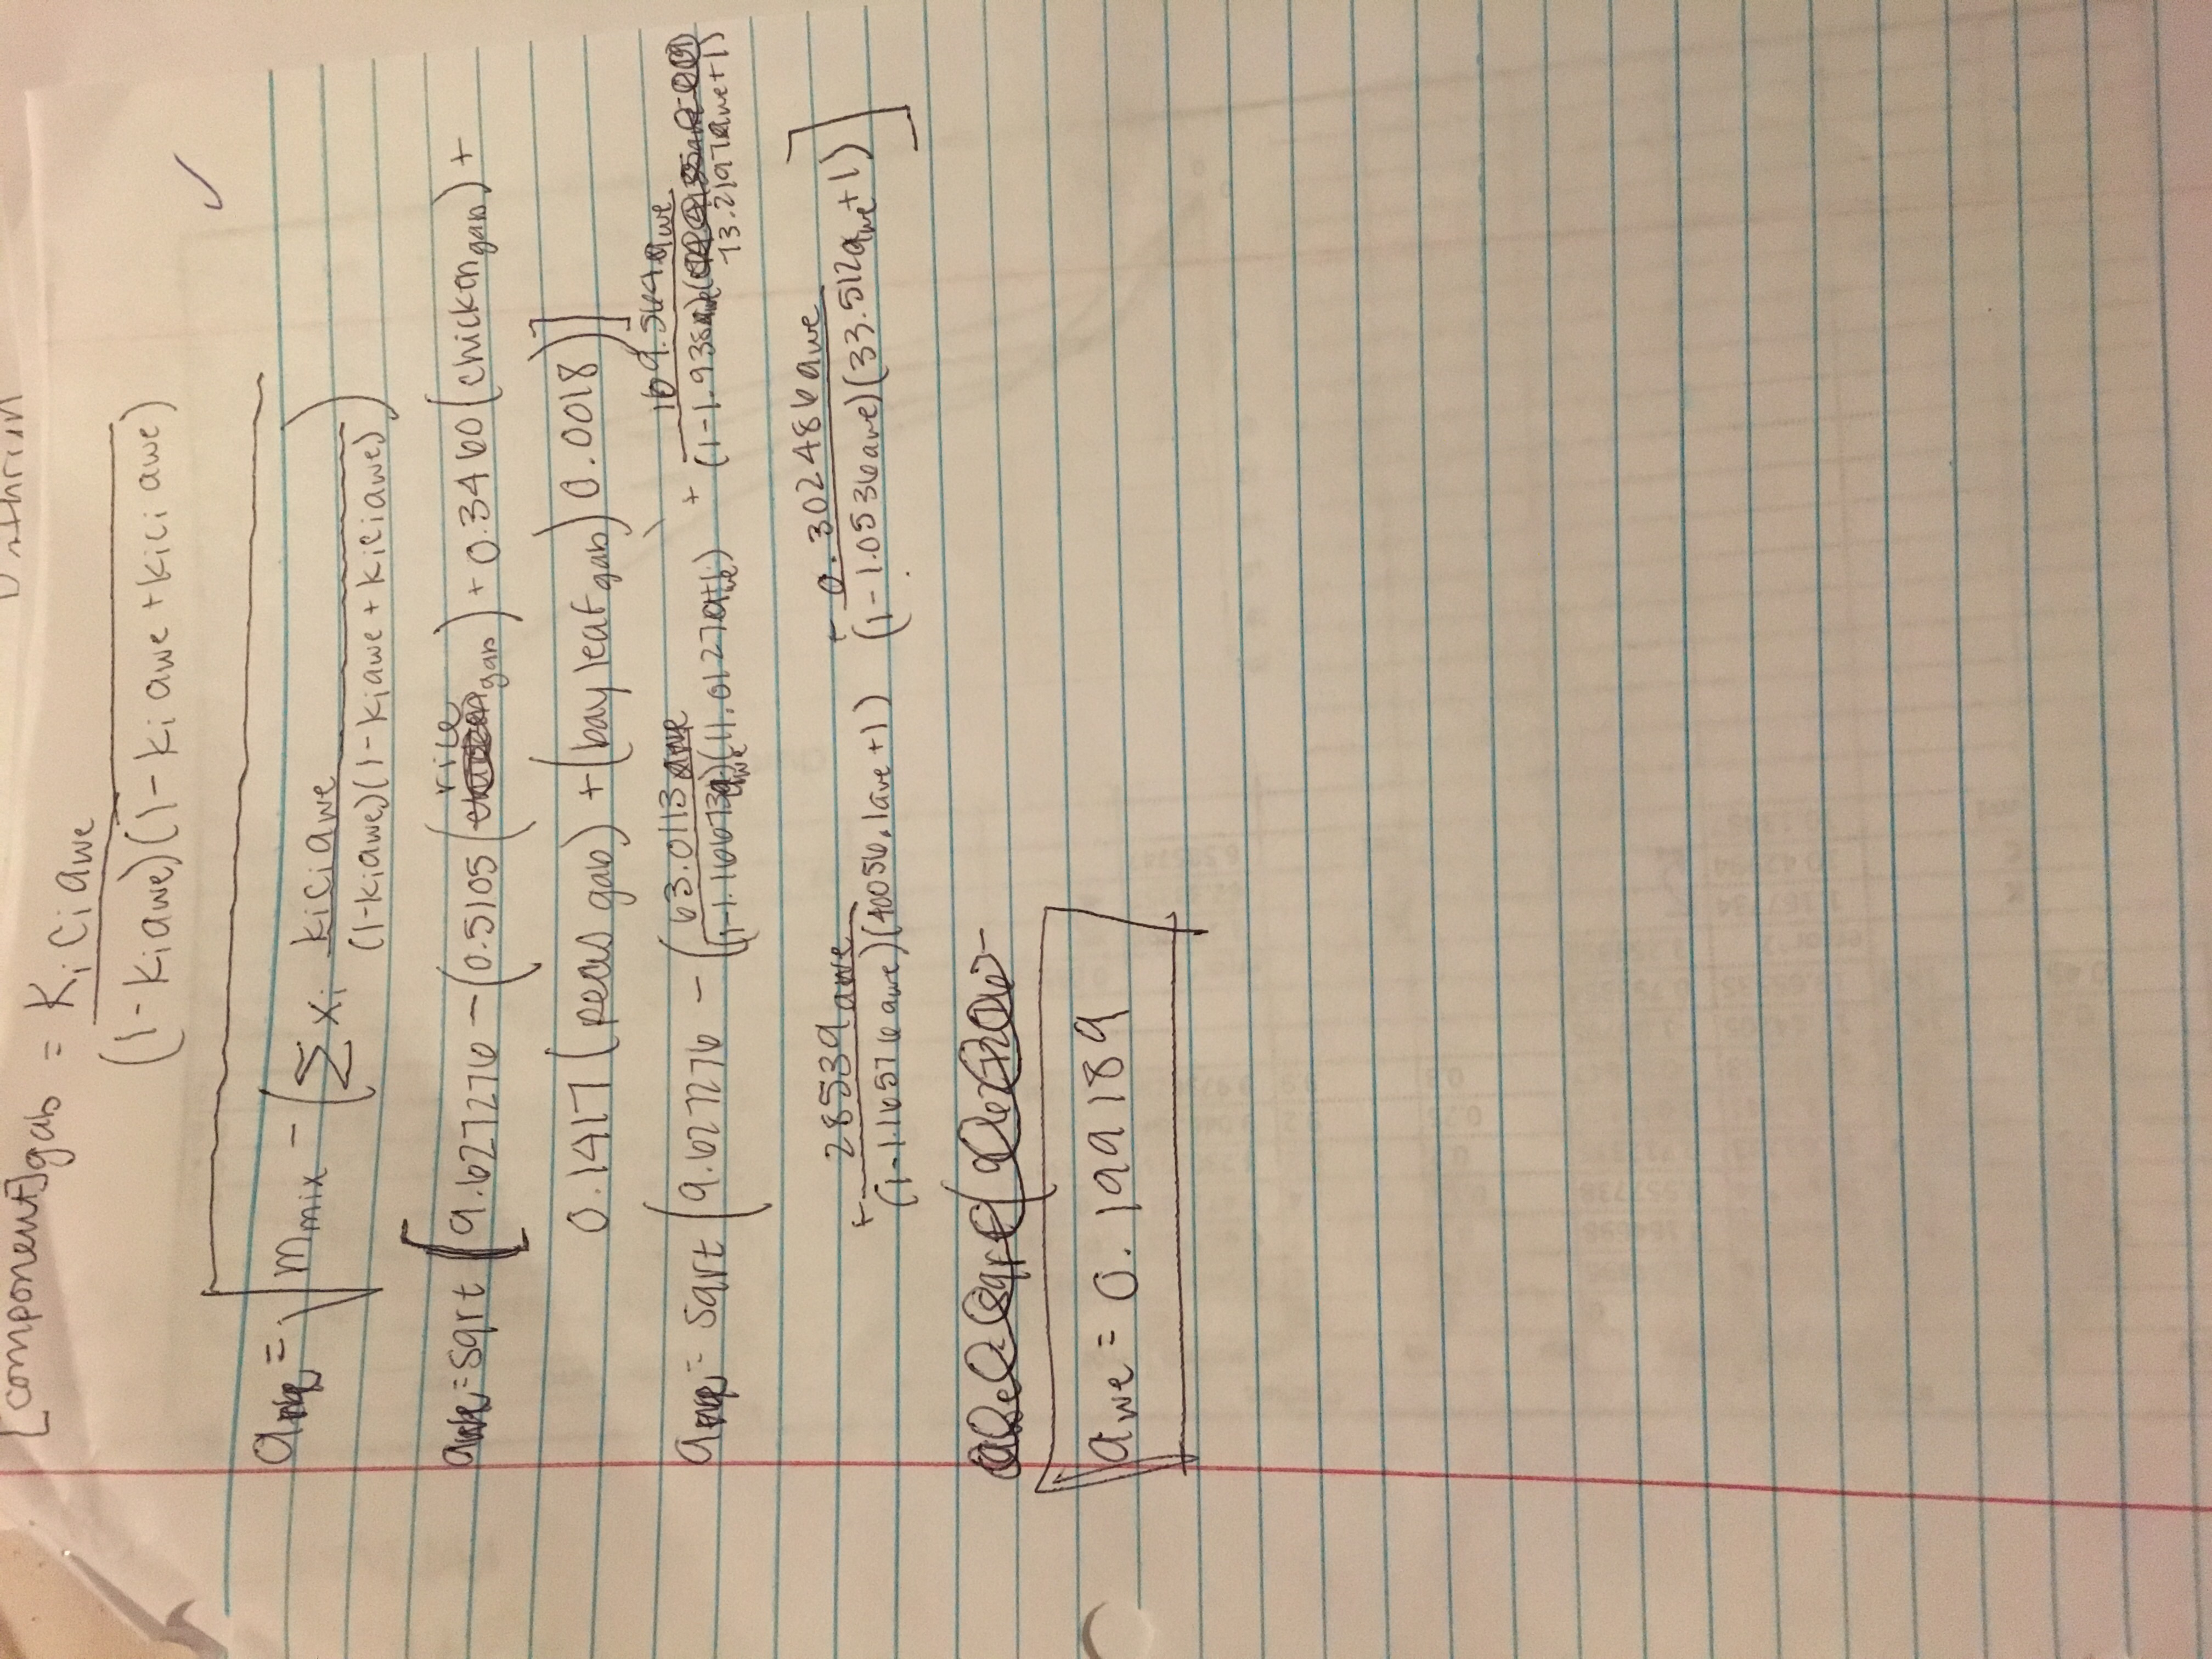 [component]gab = Ki Ci awe
(1 - Ki awe)(1 - Ki awe + KiCi awe)
✓
awe = √ mmix - (Σ xi KiCi awe
(1-Kiawe)(1-Kiawe + KiCiawe))
rice
awe = sqrt [9.627276 - (0.5105 ( gab) + 0.3460 (chickengab) +
0.1417 (peas gab) + (bay leaf gab) 0.0018)]
awe = sqrt (9.627276 - (63.0113 awe + 109.564 awe
(1-1.16673awe)(11.0127awe+1) (1-1.938awe)(
73.2197awe+1)
+ 28539 awe + 0.302486 awe
(1-1.16576 awe)(40056.1awe +1) (1-1.0536 awe)(33.512awe+1)]
awe = 0.199189